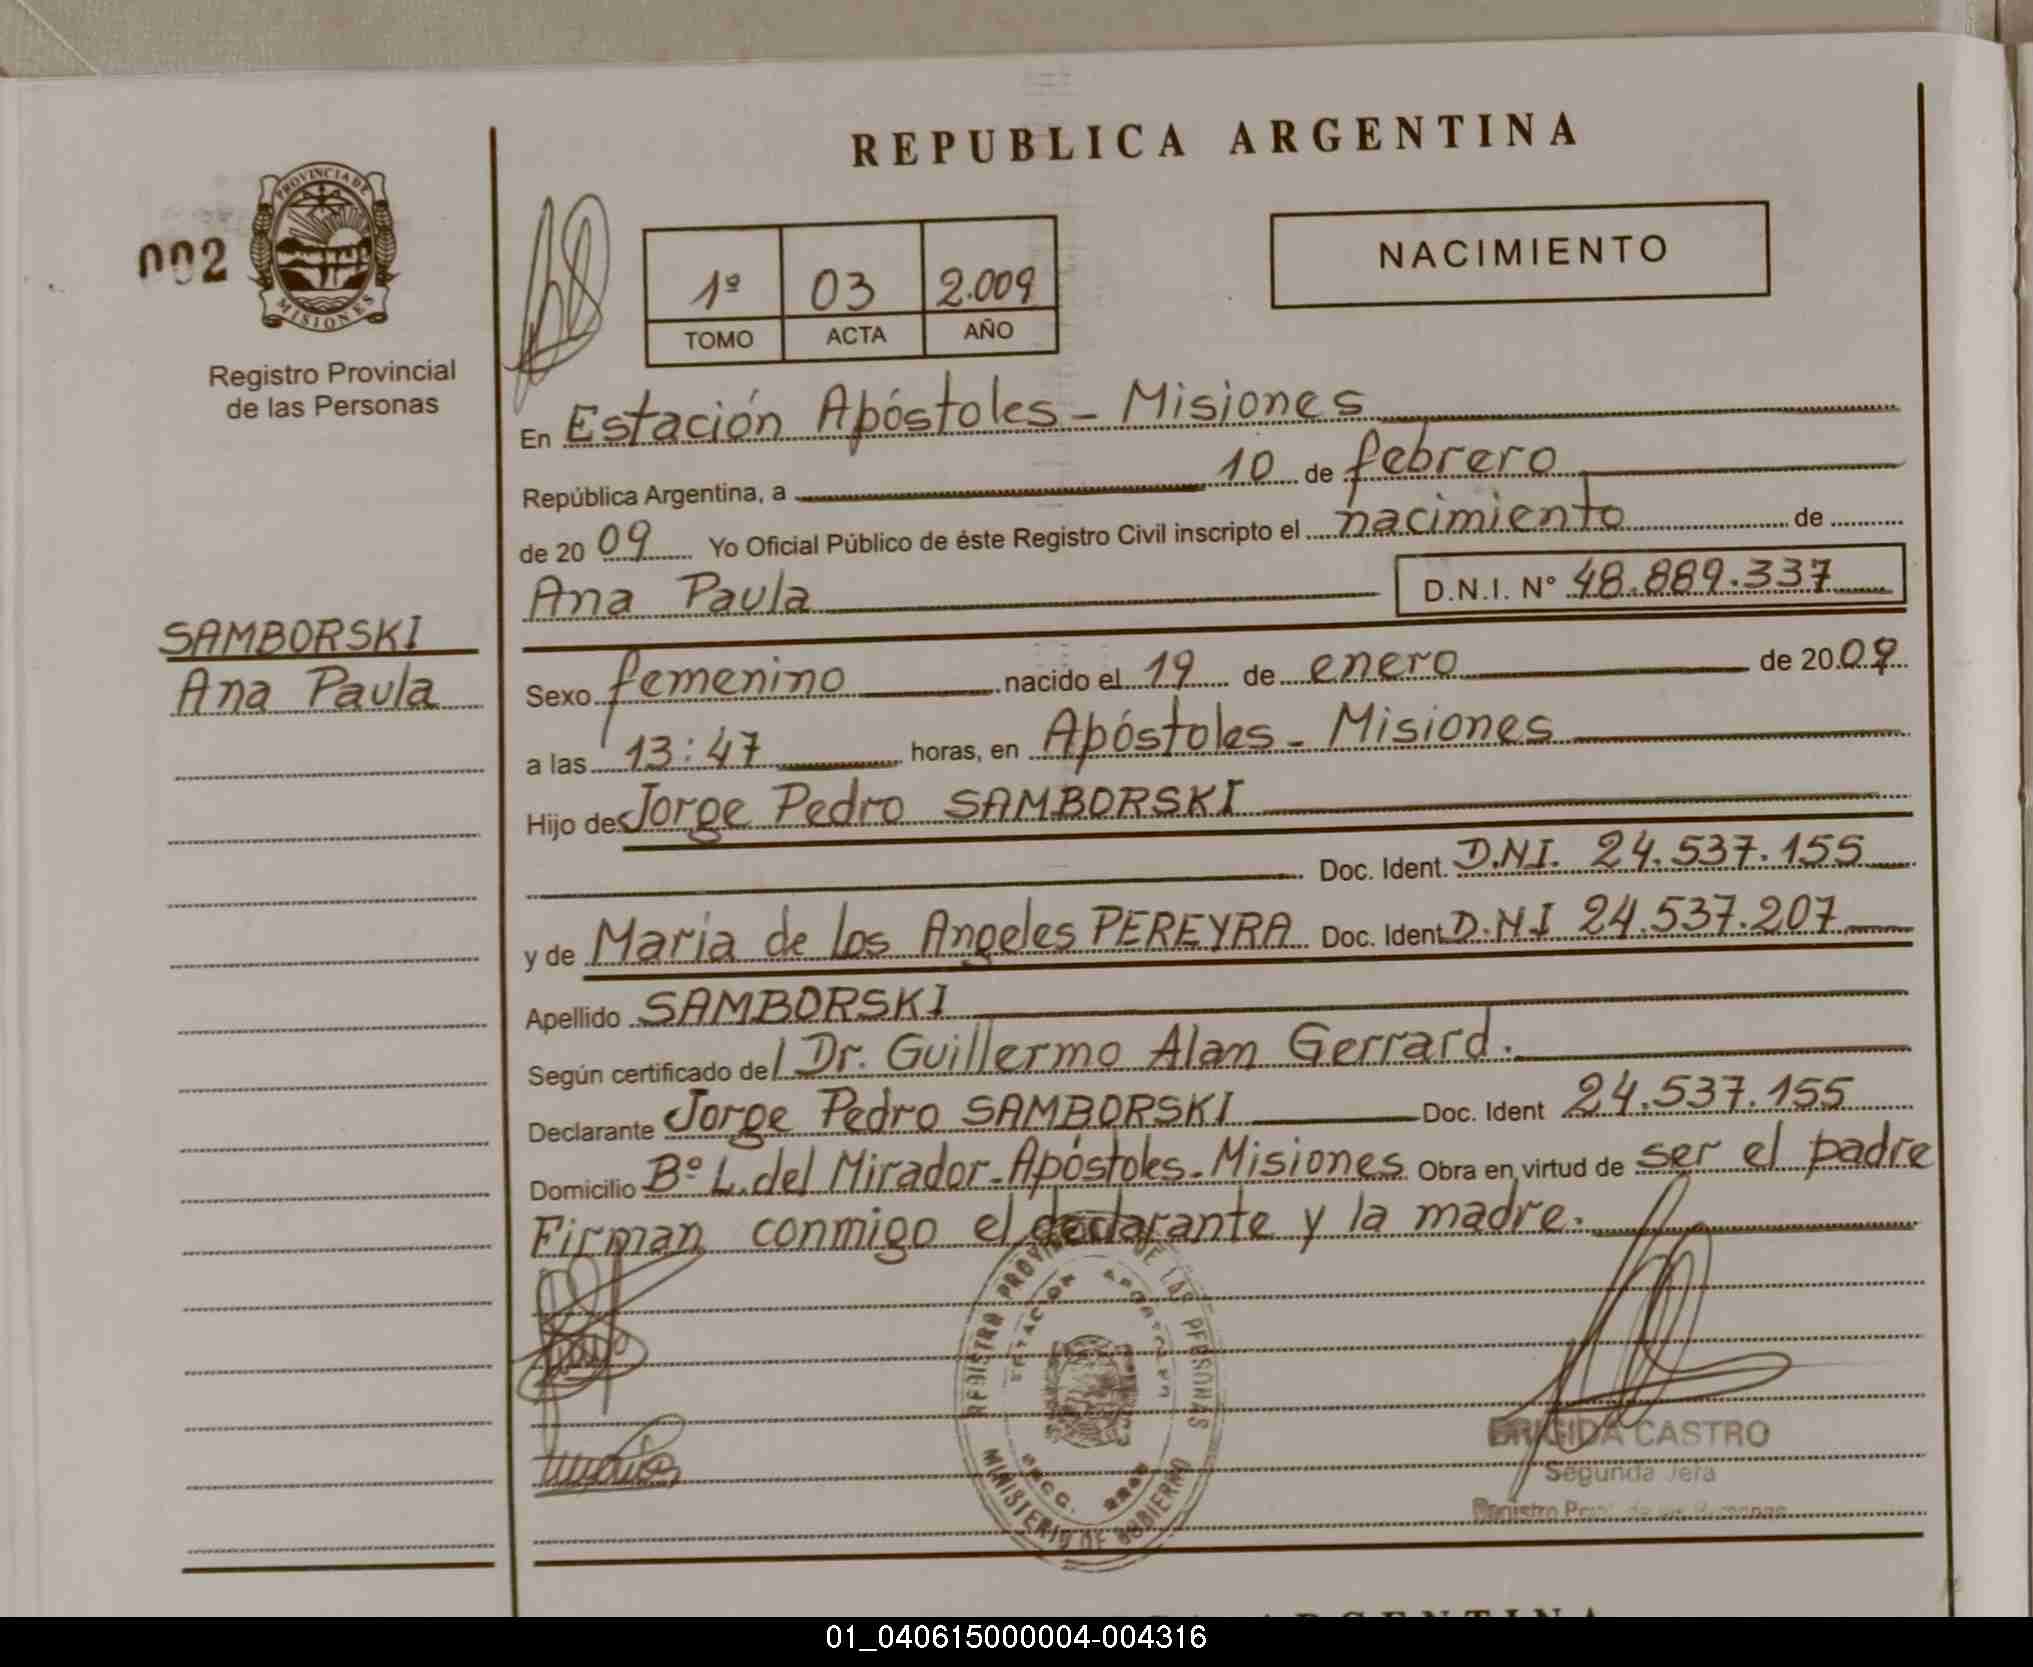 REPUBLICA ARGENTINA
002
PROVINCIA DE
MISIONES
Registro Provincial
de las Personas
1º 03 2.009
TOMO ACTA AÑO
NACIMIENTO
En Estación Apóstoles - Misiones
República Argentina, a 10 de febrero
de 2009 Yo Oficial Público de éste Registro Civil inscripto el nacimiento de
Ana Paula D.N.I. Nº 48.889.337
SAMBORSKI
Ana Paula
Sexo femenino nacido el 19 de enero de 2009
a las 13:47 horas, en Apóstoles - Misiones
Hijo de Jorge Pedro SAMBORSKI
Doc. Ident. D.N.I. 24.537.155
y de Maria de los Angeles PEREYRA Doc. Ident D.N.I 24.537.207
Apellido SAMBORSKI
Según certificado del Dr. Guillermo Alan Gerrard.
Declarante Jorge Pedro SAMBORSKI Doc. Ident 24.537.155
Domicilio Bº L. del Mirador - Apóstoles - Misiones Obra en virtud de ser el padre
Firman conmigo el declarante y la madre.
REGISTRO PROVINCIAL DE LAS PERSONAS
ESTACION APOSTOLES
MINISTERIO DE GOBIERNO
BRIGIDA CASTRO
Segunda Jefa
Registro Prov. de las Personas
ARGENTINA
01_040615000004-004316